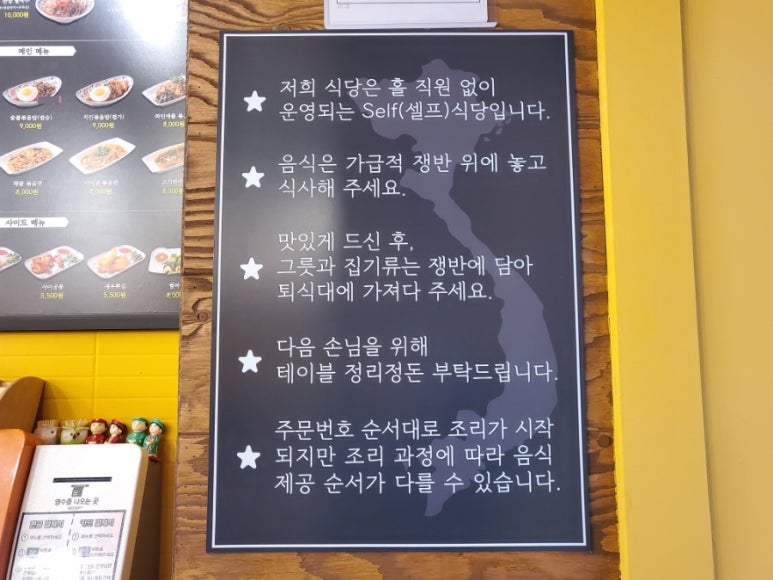 10,000원
메인 메뉴
9,000원
9,000원
8,000원
8,000원
8,000원
사이드 메뉴
5,500원
5,500원
저희 식당은 홀 직원 없이
운영되는 Self(셀프)식당입니다.
음식은 가급적 쟁반 위에 놓고
식사해 주세요.
맛있게 드신 후,
그릇과 집기류는 쟁반에 담아
퇴식대에 가져다 주세요.
다음 손님을 위해
테이블 정리정돈 부탁드립니다.
주문번호 순서대로 조리가 시작
되지만 조리 과정에 따라 음식
제공 순서가 다를 수 있습니다.
영수증 나오는 곳